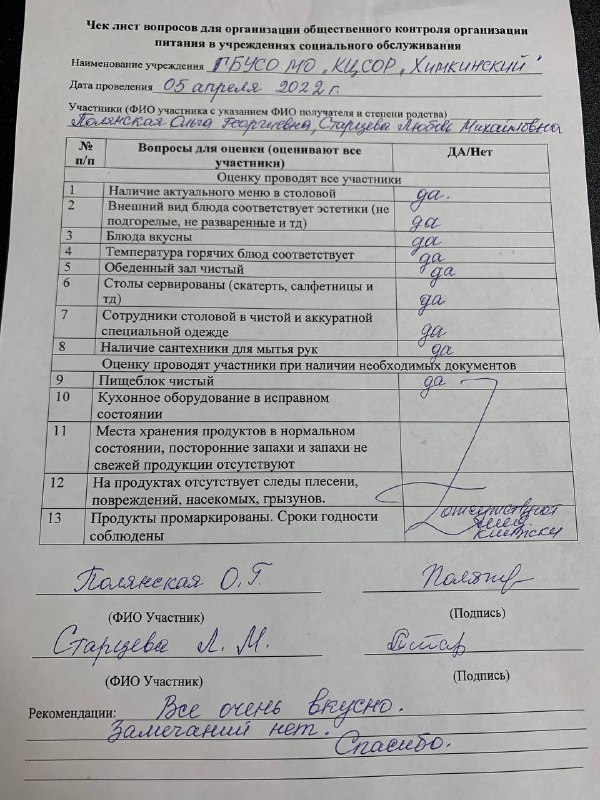 Чек лист вопросов для организации общественного контроля организации
питания в учреждениях социального обслуживания
Наименование учреждения ГБУСО МО „КЦСОР „Химкинский"
Дата проведения 05 апреля 2022 г.
Участники (ФИО участника с указанием ФИО получателя и степени родства)
Полянская Ольга Георгиевна, Старцева Любовь Михайловна
№ п/п Вопросы для оценки (оценивают все участники) ДА/Нет
Оценку проводят все участники
1 Наличие актуального меню в столовой да.
2 Внешний вид блюда соответствует эстетики (не
подгорелые, не разваренные и тд) да
3 Блюда вкусны да
4 Температура горячих блюд соответствует да
5 Обеденный зал чистый да
6 Столы сервированы (скатерть, салфетницы и
тд) да
7 Сотрудники столовой в чистой и аккуратной
специальной одежде да
8 Наличие сантехники для мытья рук да
Оценку проводят участники при наличии необходимых документов
9 Пищеблок чистый да
10 Кухонное оборудование в исправном
состоянии
11 Места хранения продуктов в нормальном
состоянии, посторонние запахи и запахи не
свежей продукции отсутствуют
12 На продуктах отсутствует следы плесени,
повреждений, насекомых, грызунов.
13 Продукты промаркированы. Сроки годности
соблюдены
отсутствуют
Полянская О.Г.
(ФИО Участник) (Подпись)
Старцева Л. М.
(ФИО Участник) (Подпись)
Рекомендации: Все очень вкусно.
Замечаний нет.
Спасибо.